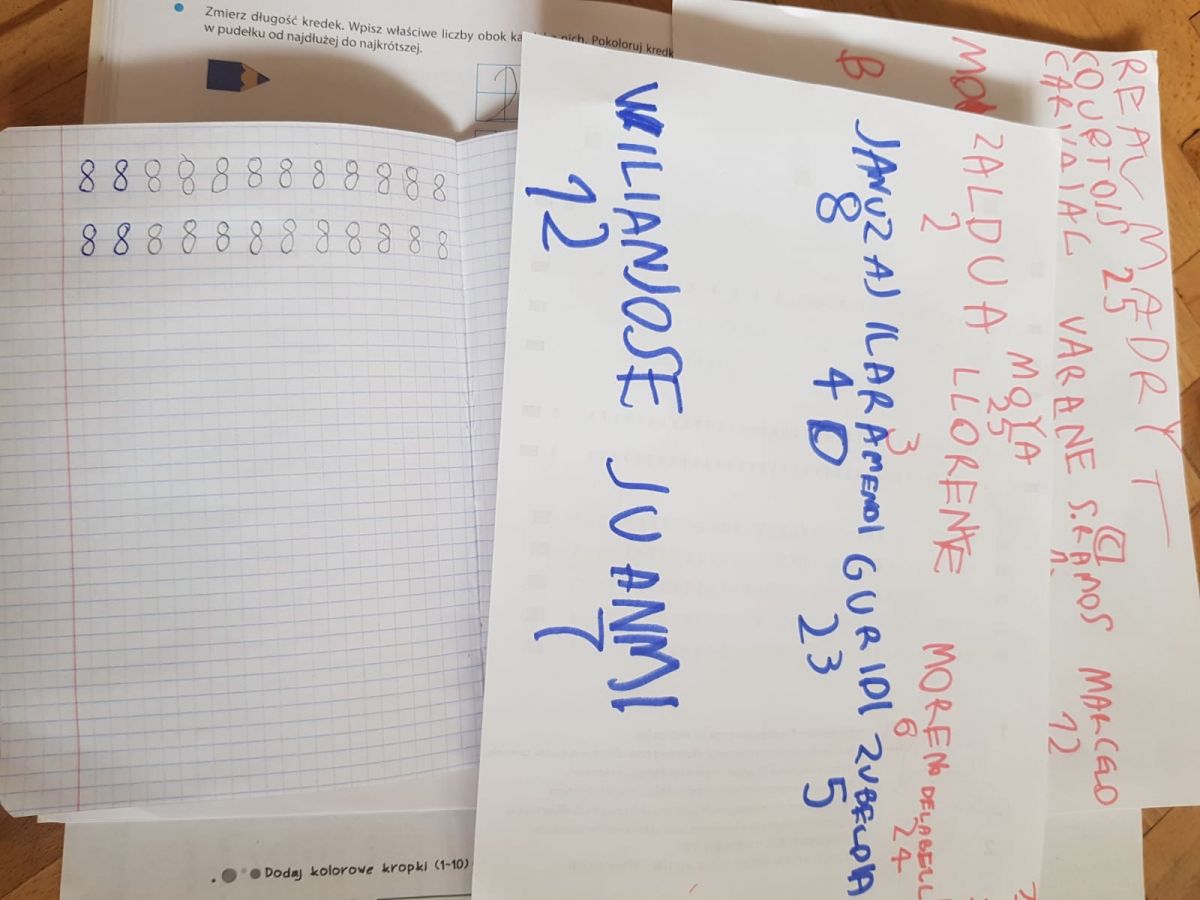 Zmierz długość kredek. Wpisz właściwe liczby obok nich. Pokoloruj
w pudełku od najdłużej do najkrótszej.
8 8 8 8 8 8 8 8 8 8 8 8
8 8 8 8 8 8 8 8 8 8 8 8
Dodaj kolorowe kropki (1-10)
REAV MADRYT
COURTOIS 25
CARVAJAL VARANE S.RAMOS MARCELO
C
12
MOYA
25
ZALDUA LLORENTE MORENO DELABELL
2 3 6 24
JANUZAJ ILARAMENDI GURIDI ZUBELDIA
8 4 0 23 5
WILIANJOSE JUANMI
12 7